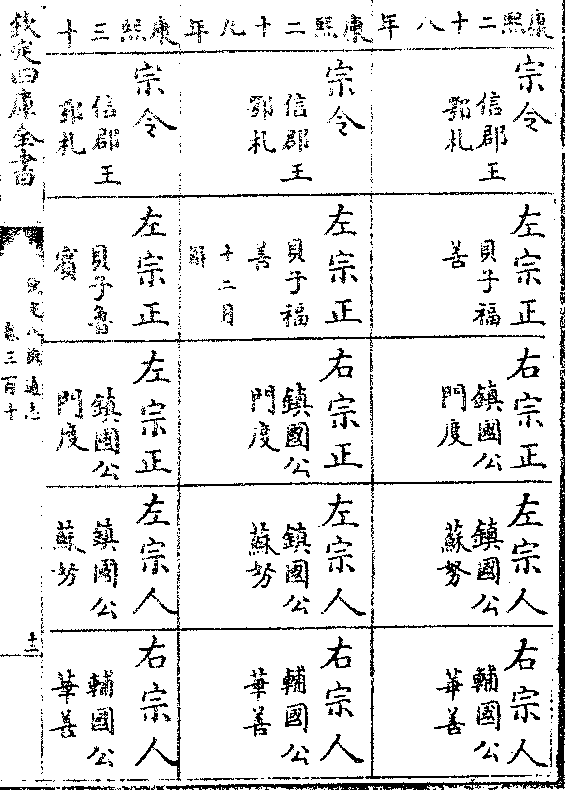 康熙二十八年
宗令
信郡王
鄂札
左宗正
貝子福
善
右宗正
鎮國公
門度
左宗人
鎮國公
蘇努
右宗人
輔國公
華善
康熙二十九年
宗令
信郡王
鄂札
左宗正
貝子福
善
十二月
右宗正
鎮國公
門度
左宗人
鎮國公
蘇努
右宗人
輔國公
華善
康熙三十
宗令
信郡王
鄂札
左宗正
貝子魯
賓
左宗正
鎮國公
門度
左宗人
鎮國公
蘇努
右宗人
輔國公
華善
欽定四庫全書
欽定八旗通志
卷三百十